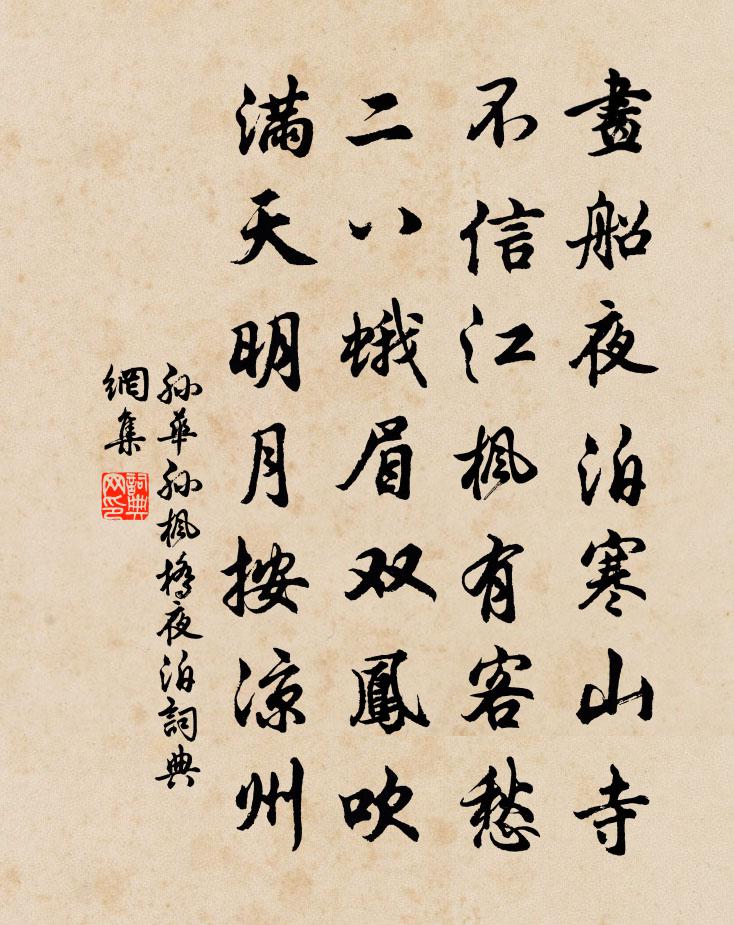 畫船夜泊寒山寺
不信江楓有客愁
二八蛾眉双鳳吹
滿天明月按涼州
孫華孫楓橋夜泊詞典
網集
詞典
网印